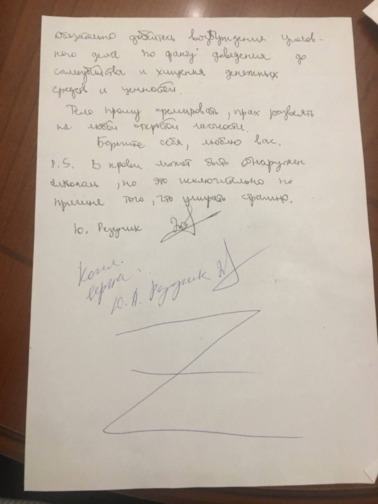 обязательно добиться возбуждения уголов-
ного дела по факту доведения до
самоубийства и хищения денежных
средств и ценностей.
Тело прошу кремировать, прах развеять
на любой открытой местности.
Берегите себя, люблю вас.
P.S. В крови может быть обнаружен
алкоголь, но это исключительно по
причине того, что умирать страшно.
Ю. Резучик
Копия
верна:
Ю. А. Резучик